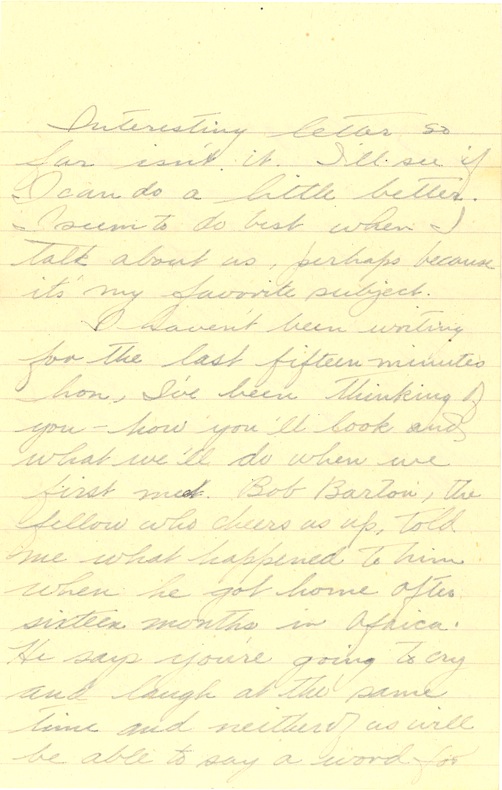 Interesting letter so
far isn't it. I'll see if
I can do a little better.
I seem to do best when I
talk about us, perhaps because
it's my favorite subject.
I haven't been writing
for the last fifteen minutes
hon, I've been thinking of
you - how you'll look and
what we'll do when we
first meet. Bob Barton, the
fellow who cheers us up, told
me what happened to him
when he got home after
sixteen months in Africa.
He says you're going to cry
and laugh at the same
time and neither of us will
be able to say a word for